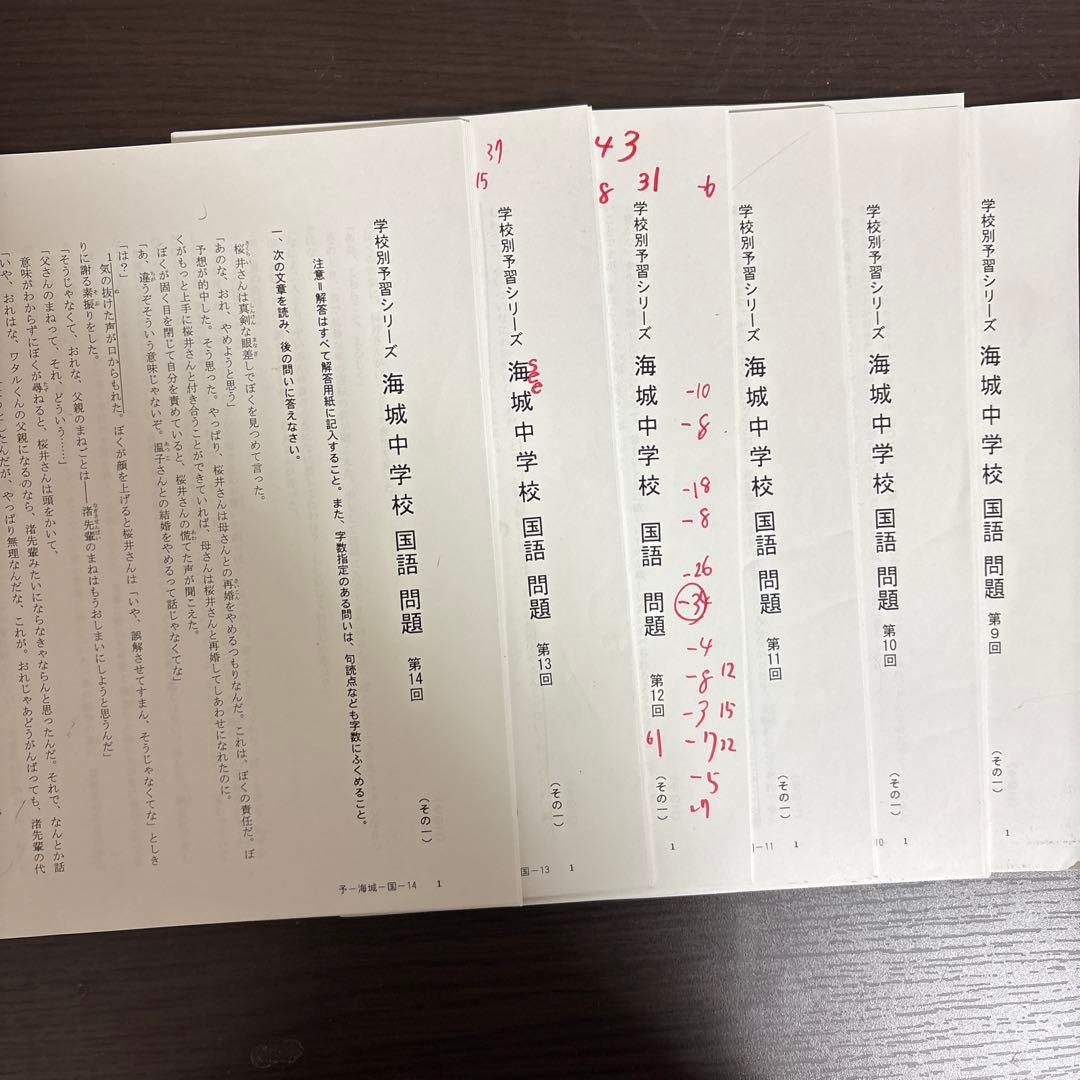 学校別予習シリーズ 海城中学校 国語 問題 第9回 (その一)
1
学校別予習シリーズ 海城中学校 国語 問題 第10回 (その一)
10 1
学校別予習シリーズ 海城中学校 国語 問題 第11回 (その一)
-11 1
-6
-10
-8
-18
-8
-26
-34
-4
-8 12
-3 15
-17 22
-5
43
8 31
学校別予習シリーズ 海城中学校 国語 問題 第12回 (その一)
61
1
37
15
学校別予習シリーズ 海城中学校 国語 問題 第13回 (その一)
国-13 1
学校別予習シリーズ 海城中学校 国語 問題 第14回 (その一)
注意=解答はすべて解答用紙に記入すること。また、字数指定のある問いは、句読点なども字数にふくめること。
一、次の文章を読み、後の問いに答えなさい。
桜井さんは真剣な眼差しでぼくを見つめて言った。
「あのな、おれ、やめようと思う」
予想が的中した。そう思った。やっぱり、桜井さんは母さんとの再婚をやめるつもりなんだ。これは、ぼくの責任だ。ぼ
くがもっと上手に桜井さんと付き合うことができていれば、母さんは桜井さんと再婚してしあわせになれたのに。
ぼくが固く目を閉じて自分を責めていると、桜井さんの慌てた声が聞こえた。
「あ、違うぞそういう意味じゃないぞ。温子さんとの結婚をやめるって話じゃなくてな」
「は？」
1気の抜けた声が口からもれた。ぼくが顔を上げると桜井さんは「いや、誤解させてすまん、そうじゃなくてな」としき
りに謝る素振りをした。
「そうじゃなくて、おれな、父親のまねごとは――渚先輩のまねはもうおしまいにしようと思うんだ」
「父さんのまねって、それ、どういう……」
意味がわからずにぼくが尋ねると、桜井さんは頭をかいて、
「いや、おれはな、ワタルくんの父親になるのなら、渚先輩みたいにならなきゃならんと思ったんだ。それで、なんとか話
んだが、やっぱり無理なんだな、これが。おれじゃあどうがんばっても、渚先輩の代
予-海城-国-14 1